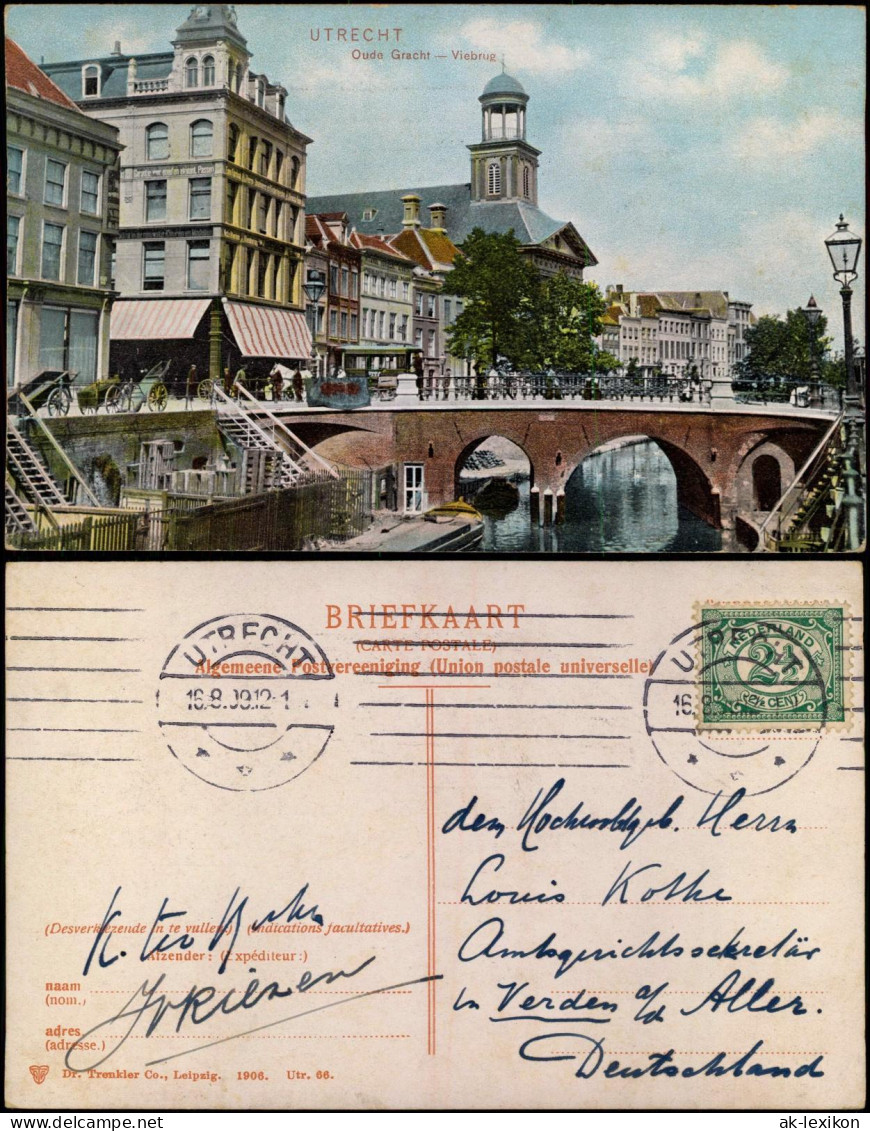 UTRECHT
Oude Gracht — Viebrug
BRIEFKAART
(CARTE POSTALE)
Algemeene Postvereeniging (Union postale universelle)
UTRECHT
16.8.09.12-1
UTRECHT
16.8
NEDERLAND
2½
2½ CENT
dem Hochwohlgeb. Herrn
Louis Kothe
Amtsgerichtssekretär
in Verden a/d Aller.
Deutschland
(Desverkiezende in te vullen) (Indications facultatives.)
Afzender: (Expéditeur:)
K. ter
naam
(nom.)
adres
(adresse.)
Dr. Trenkler Co., Leipzig. 1906. Utr. 66.
ak-lexikon.com